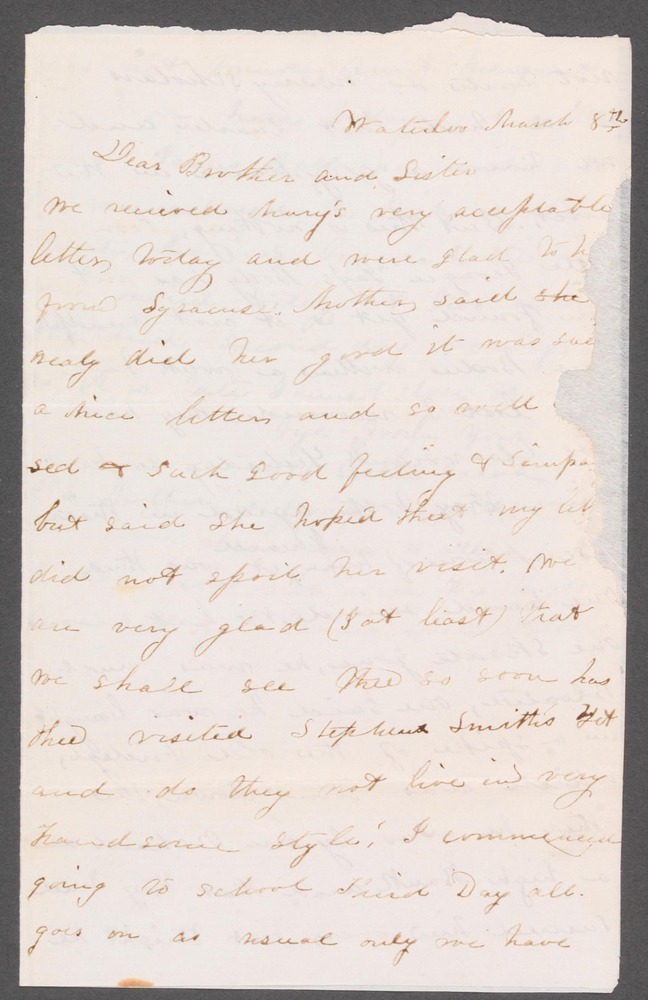 Waterloo March 8th
Dear Brother and Sister
We recieved Mary's very acceptable
letter today and were glad to h
from Syracuse. Mother said she
realy did her good it was su
a nice letter and so well
sed & such good feeling & simpa
but said she hoped that my let
did not spoil her visit. We
are very glad (I at least) that
we shall see thee so soon has
thee visited Stephen Smith's yet
and do they not live in very
handsome style, I commenced
going to school Third Day all.
goes on as usual only we have